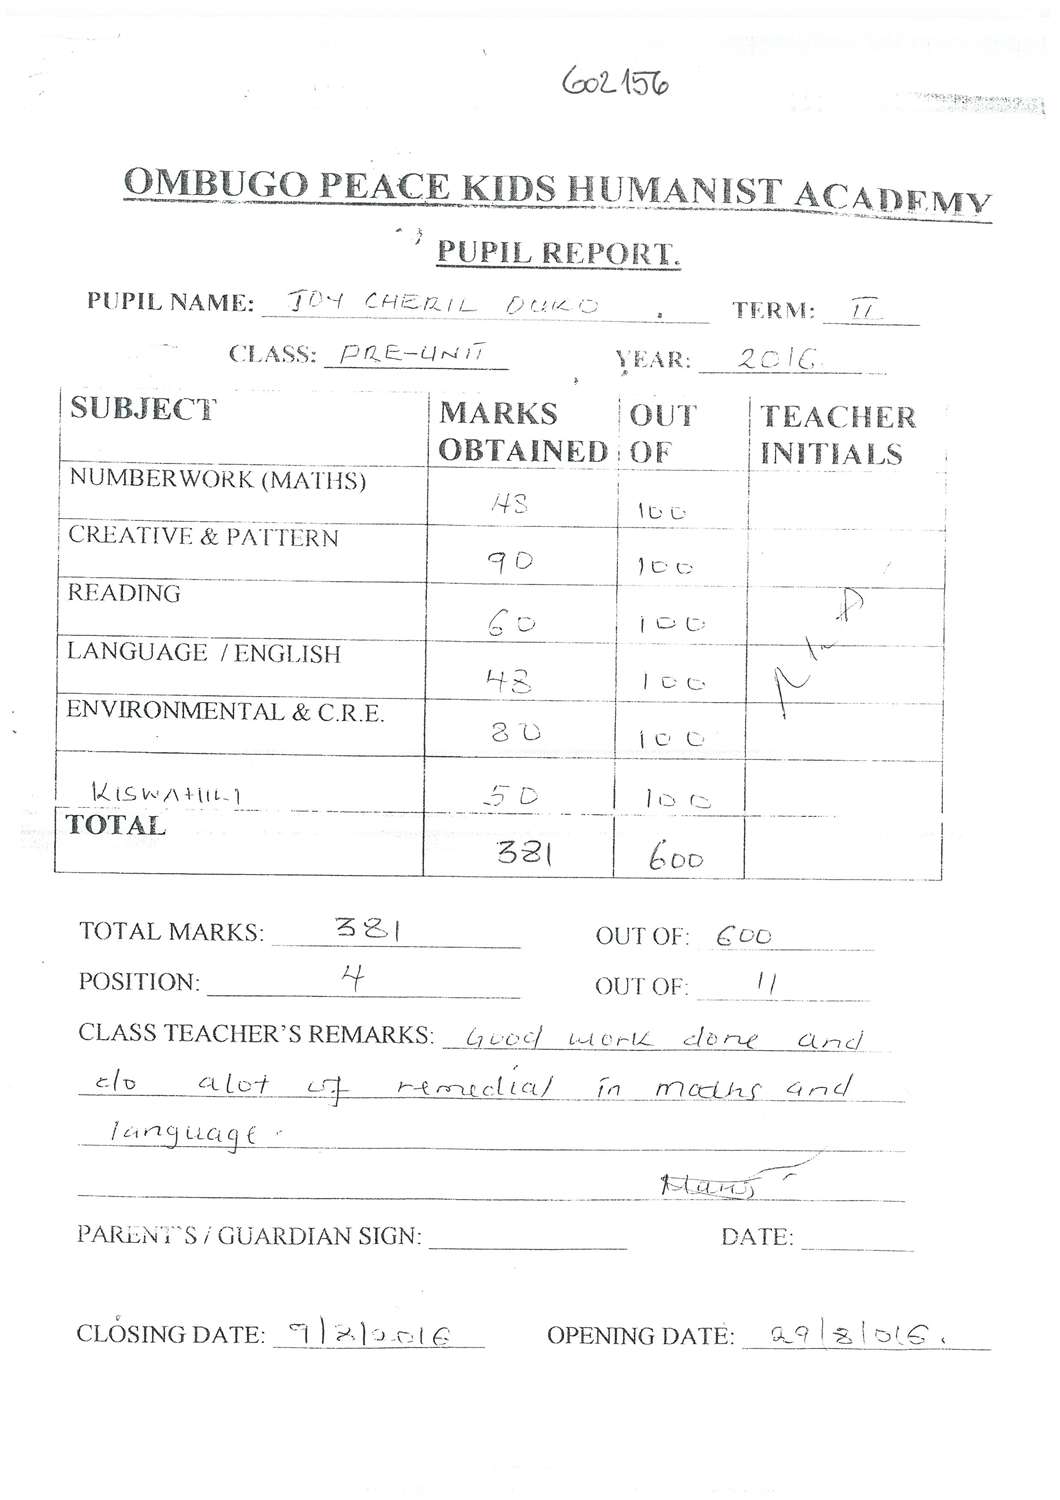 602156
OMBUGO PEACE KIDS HUMANIST ACADEMY
PUPIL REPORT.
PUPIL NAME: JOY CHERIL OUKO TERM: II
CLASS: PRE-UNIT YEAR: 2016
SUBJECT MARKS OBTAINED OUT OF TEACHER INITIALS
NUMBERWORK (MATHS) 48 100
CREATIVE & PATTERN 90 100
READING 60 100
LANGUAGE / ENGLISH 48 100
ENVIRONMENTAL & C.R.E. 80 100
KISWAHILI 50 100
TOTAL 381 600
TOTAL MARKS: 381 OUT OF: 600
POSITION: 4 OUT OF: 11
CLASS TEACHER'S REMARKS: Good work done and
do alot of remedial in maths and
language.
PARENT'S / GUARDIAN SIGN: DATE:
CLOSING DATE: 9/8/2016 OPENING DATE: 29/8/016.